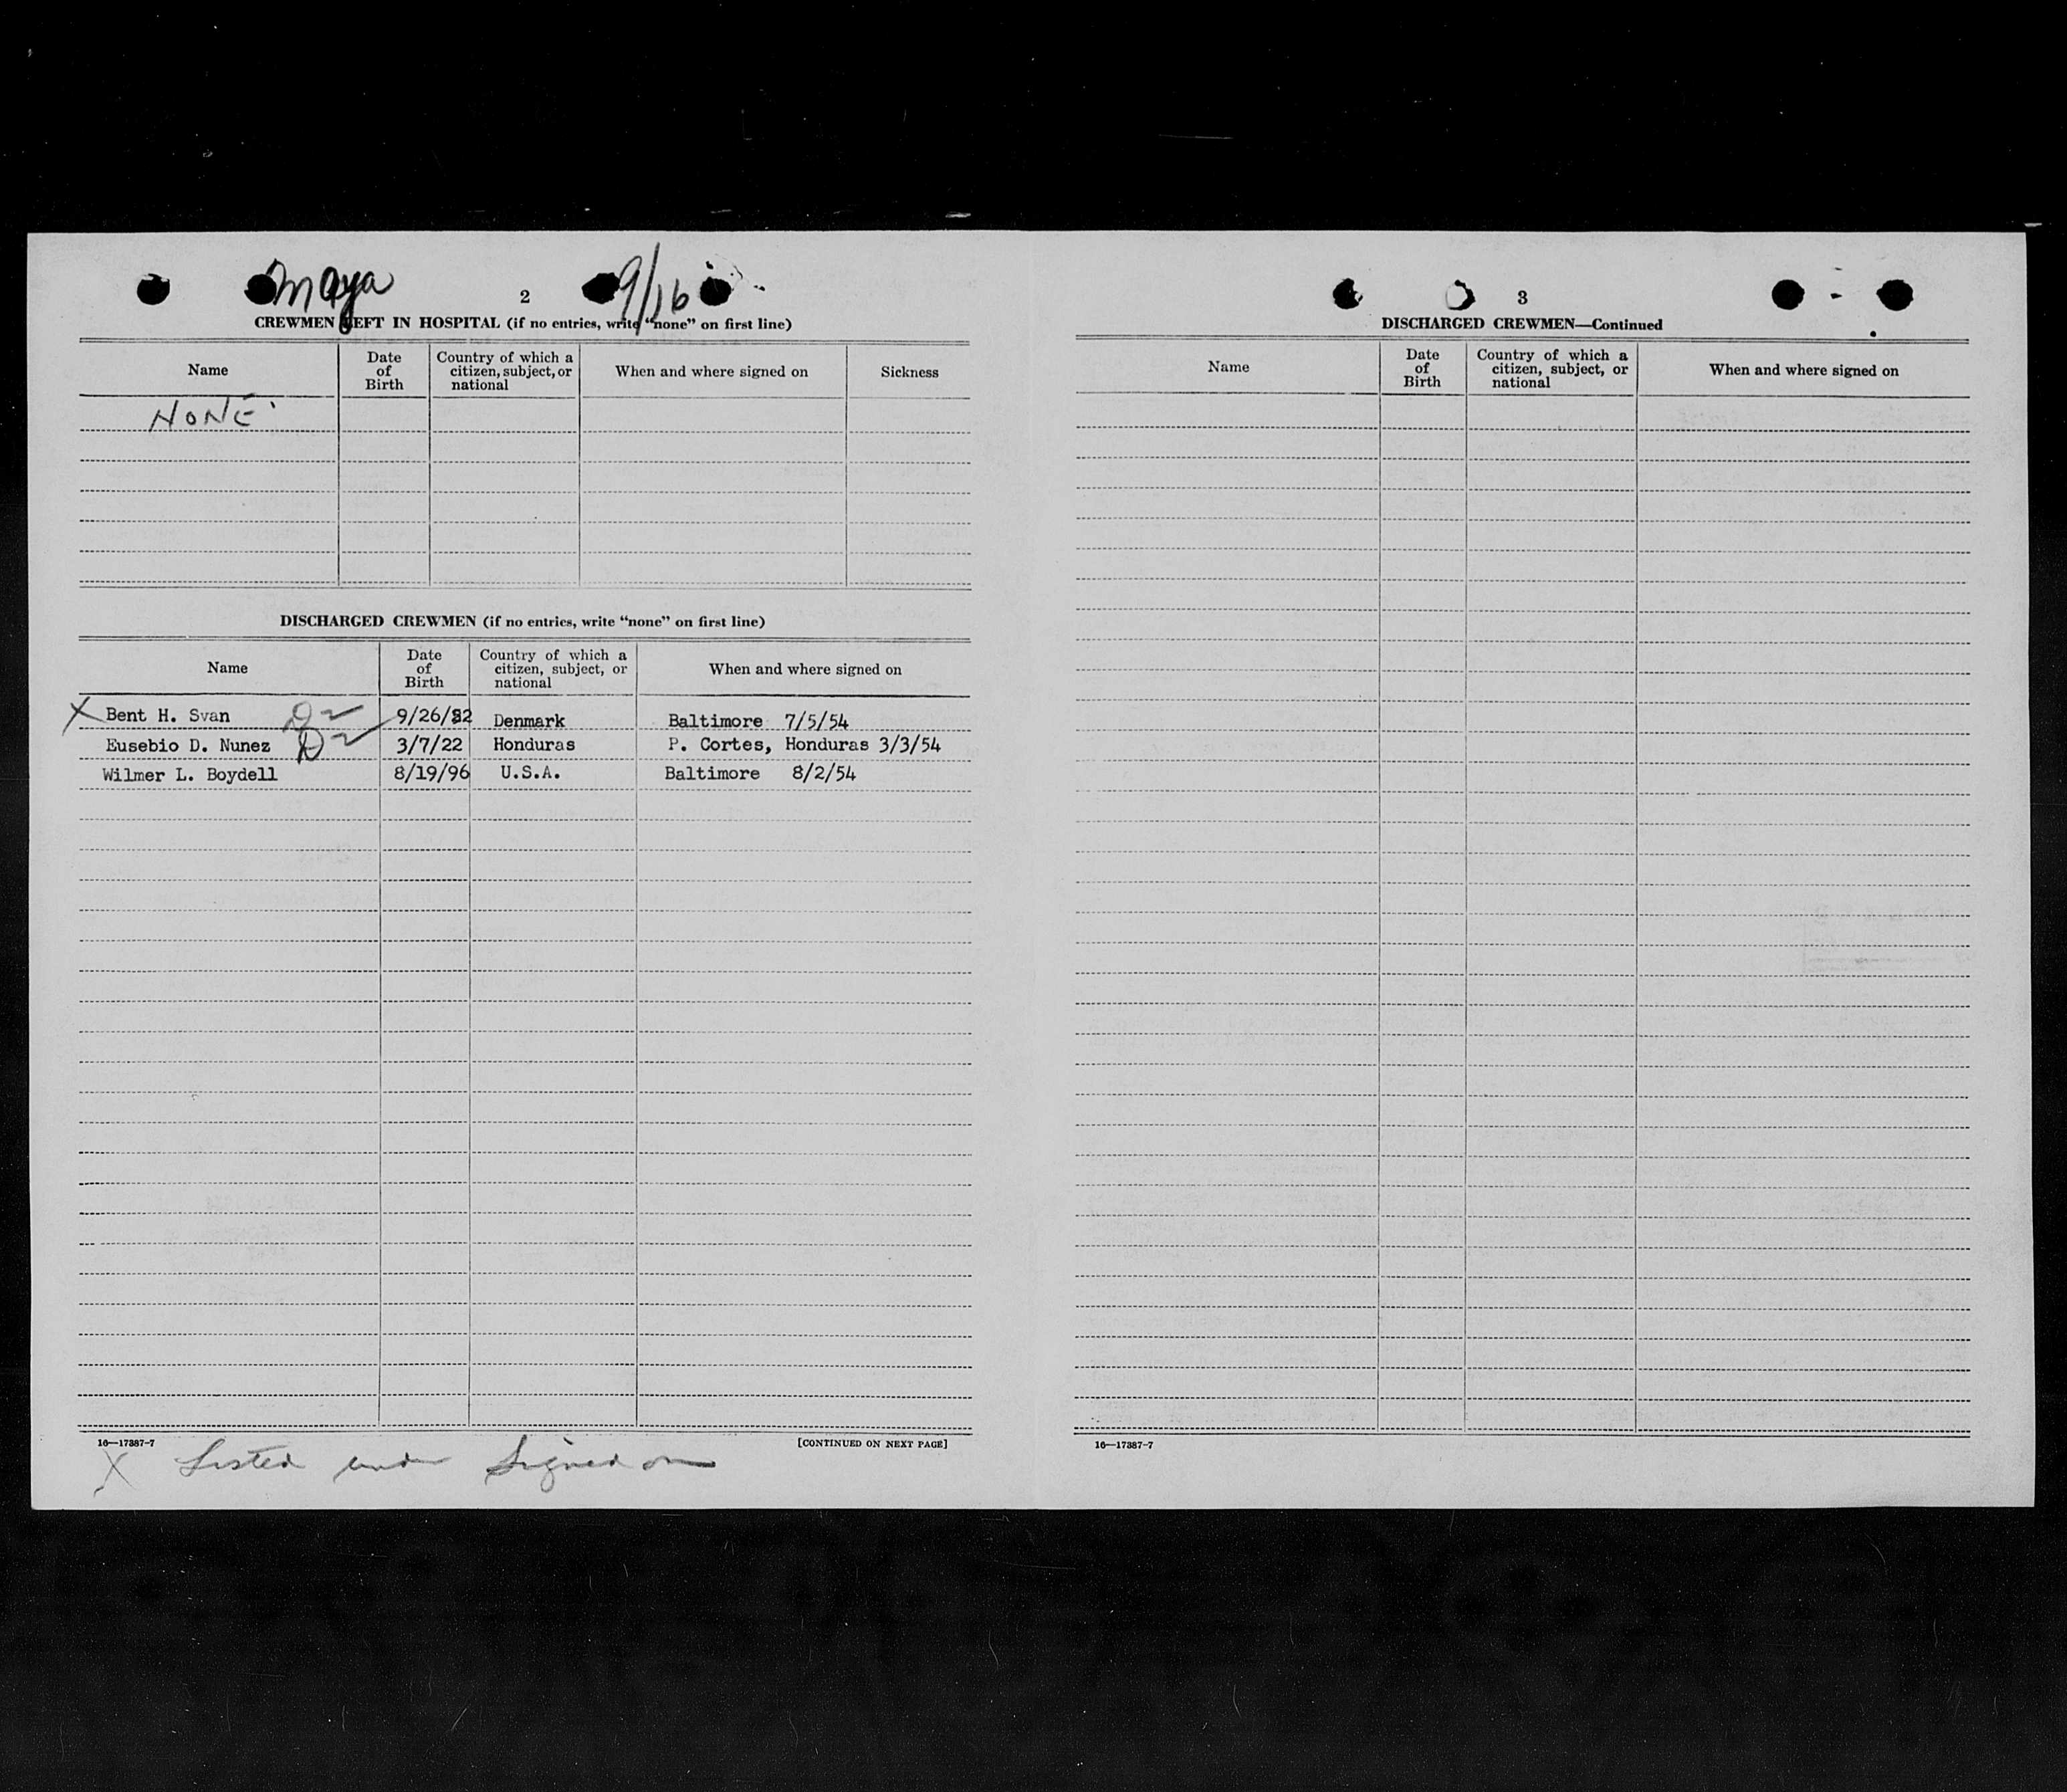 Maya 2 9/16
CREWMEN LEFT IN HOSPITAL (if no entries, write "none" on first line)
Name Date of Birth Country of which a citizen, subject, or national When and where signed on Sickness
NONE
DISCHARGED CREWMEN (if no entries, write "none" on first line)
Name Date of Birth Country of which a citizen, subject, or national When and where signed on
X Bent H. Svan 9/26/22 Denmark Baltimore 7/5/54
Eusebio D. Nunez 3/7/22 Honduras P. Cortes, Honduras 3/3/54
Wilmer L. Boydell 8/19/96 U.S.A. Baltimore 8/2/54
16—17387-7 [CONTINUED ON NEXT PAGE]
X Listed under Signed on
3
DISCHARGED CREWMEN—Continued
Name Date of Birth Country of which a citizen, subject, or national When and where signed on
16—17387-7